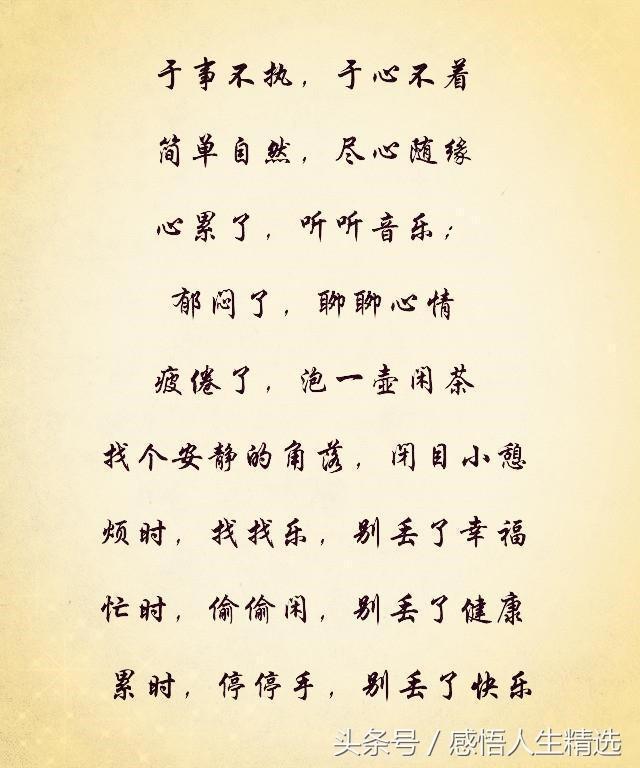 于事不执，于心不着
简单自然，尽心随缘
心累了，听听音乐；
郁闷了，聊聊心情
疲倦了，泡一壶闲茶
找个安静的角落，闭目小憩
烦时，找找乐，别丢了幸福
忙时，偷偷闲，别丢了健康
累时，停停手，别丢了快乐
头条号/感悟人生精选